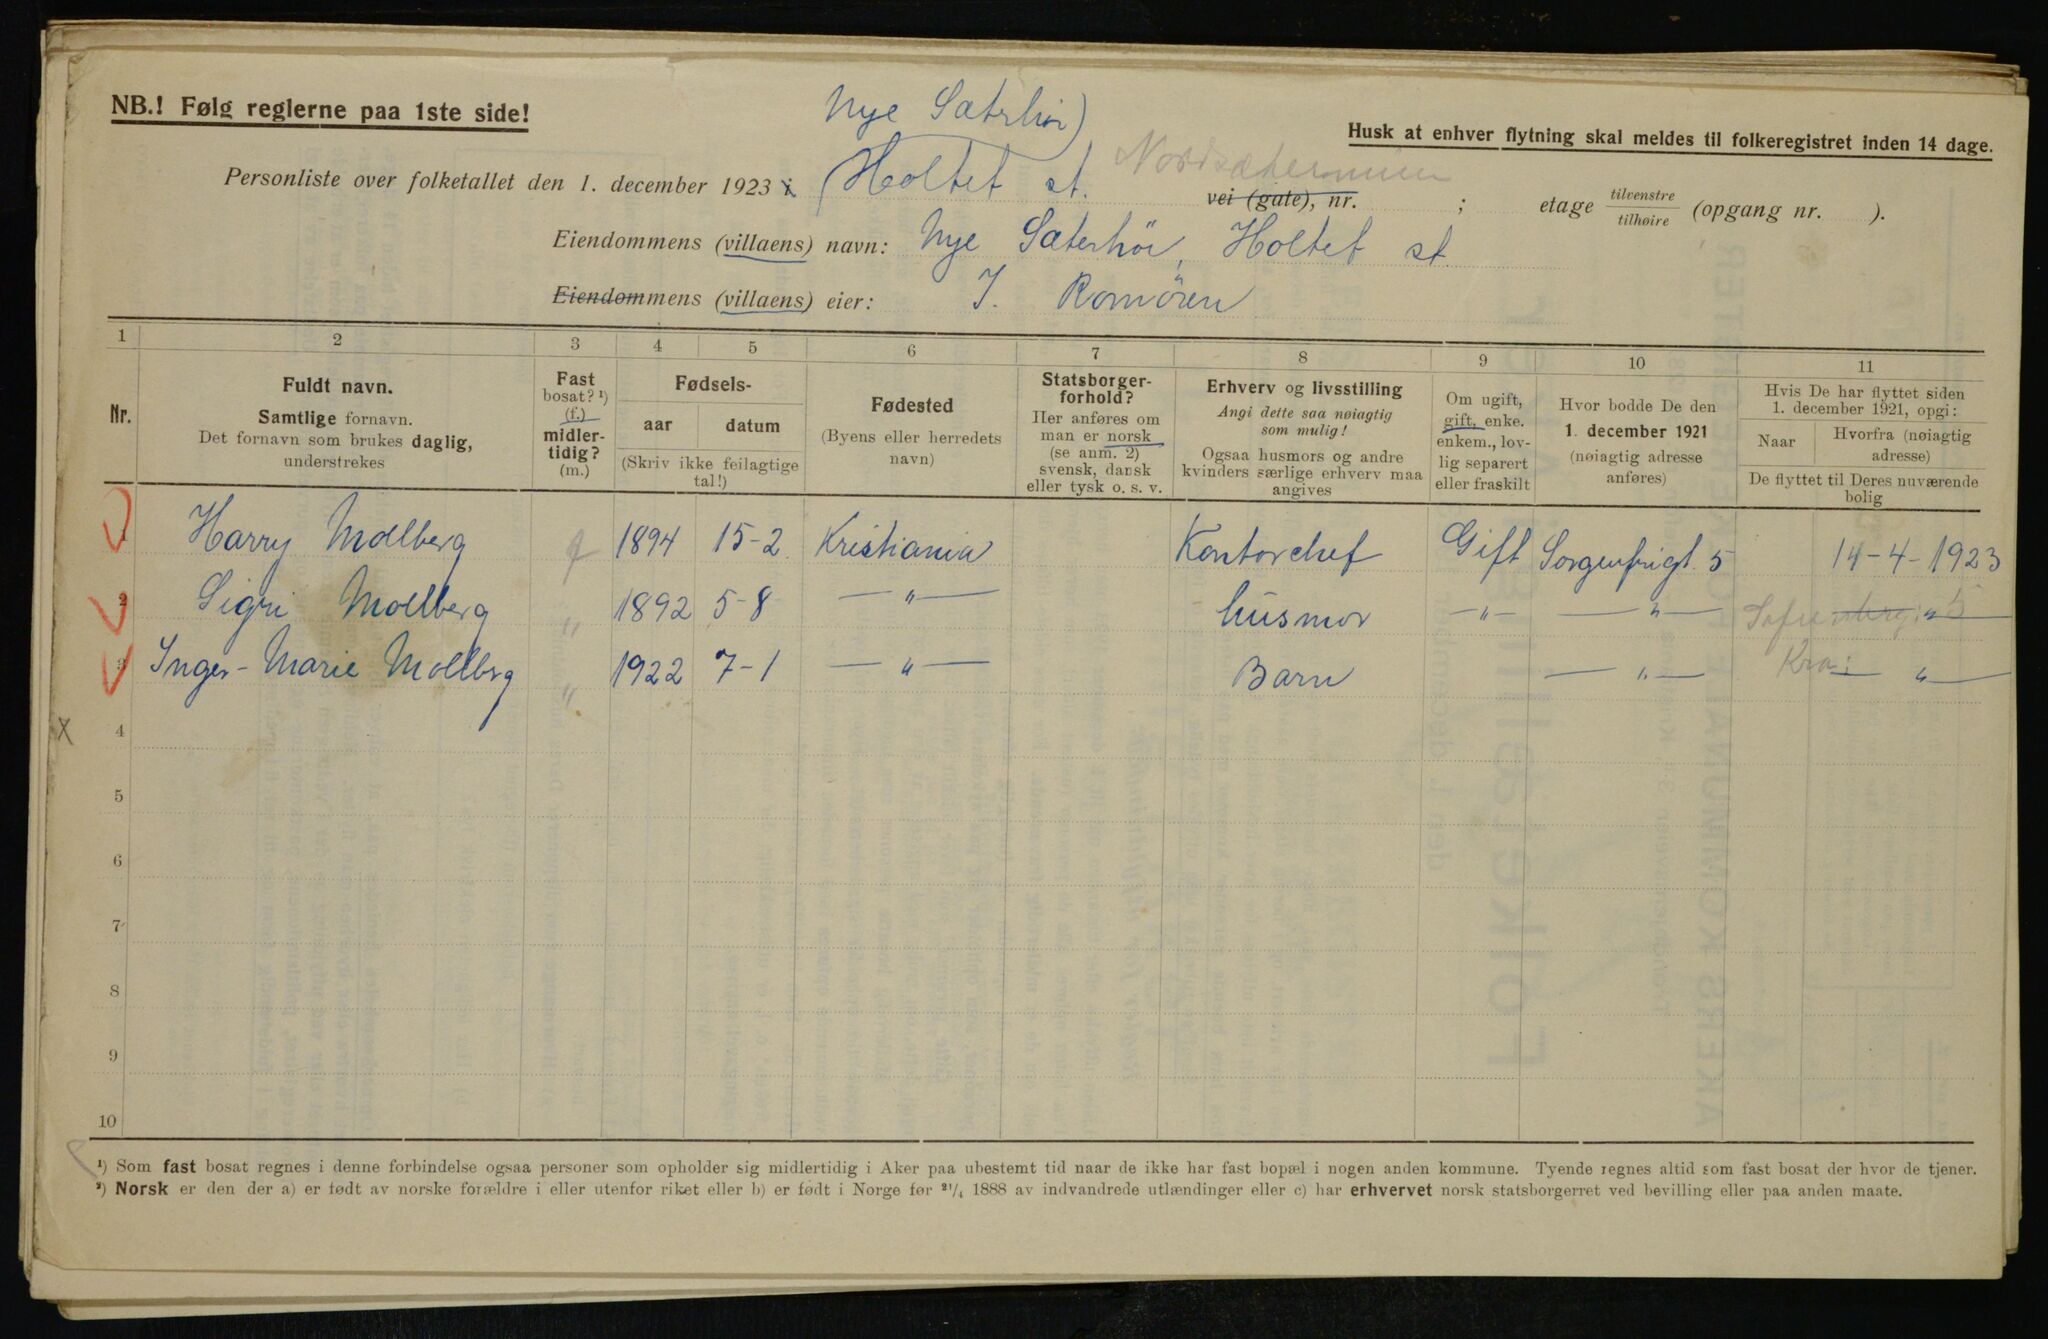 NB.! Følg reglerne paa 1ste side!
Nye Sæterhöi)
Husk at enhver flytning skal meldes til folkeregistret inden 14 dage.
Personliste over folketallet den 1. december 1923 i (Holtet st. vei (gate), nr. ; etage tilvenstre tilhøire (opgang nr. ).
Eiendommens (villaens) navn: Nye Sæterhöi, Holtet st.
Eiendommens (villaens) eier: J. Romören
1 2 3 4 5 6 7 8 9 10 11
Nr.
Fuldt navn.
Samtlige fornavn.
Det fornavn som brukes daglig,
understrekes
Fast
bosat? ¹)
(f.)
midler-
tidig?
(m.)
Fødsels-
aar datum
(Skriv ikke feilagtige
tal!)
Fødested
(Byens eller herredets
navn)
Statsborger-
forhold?
Her anføres om
man er norsk
(se anm. 2)
svensk, dansk
eller tysk o. s. v.
Erhverv og livsstilling
Angi dette saa nøiagtig
som mulig!
Ogsaa husmors og andre
kvinders særlige erhverv maa
angives
Om ugift,
gift, enke.
enkem., lov-
lig separert
eller fraskilt
Hvor bodde De den
1. december 1921
(nøiagtig adresse
anføres)
Hvis De har flyttet siden
1. december 1921, opgi:
Naar Hvorfra (nøiagtig
adresse)
De flyttet til Deres nuværende
bolig
1 Harry Mollberg f 1894 15-2 Kristiania Kontorchef Gift Sorgenfrigt. 5 14-4-1923
2 Sigri Mollberg " 1892 5-8 —"— Husmor —"— —"— —"— 5
3 Inger-Marie Mollbrg " 1922 7-1 —"— Barn —"— Kra: —"—
X
4
5
6
7
8
9
10
¹) Som fast bosat regnes i denne forbindelse ogsaa personer som opholder sig midlertidig i Aker paa ubestemt tid naar de ikke har fast bopæl i nogen anden kommune. Tyende regnes altid som fast bosat der hvor de tjener.
²) Norsk er den der a) er født av norske forældre i eller utenfor riket eller b) er født i Norge før ²¹/₄ 1888 av indvandrede utlændinger eller c) har erhvervet norsk statsborgerret ved bevilling eller paa anden maate.